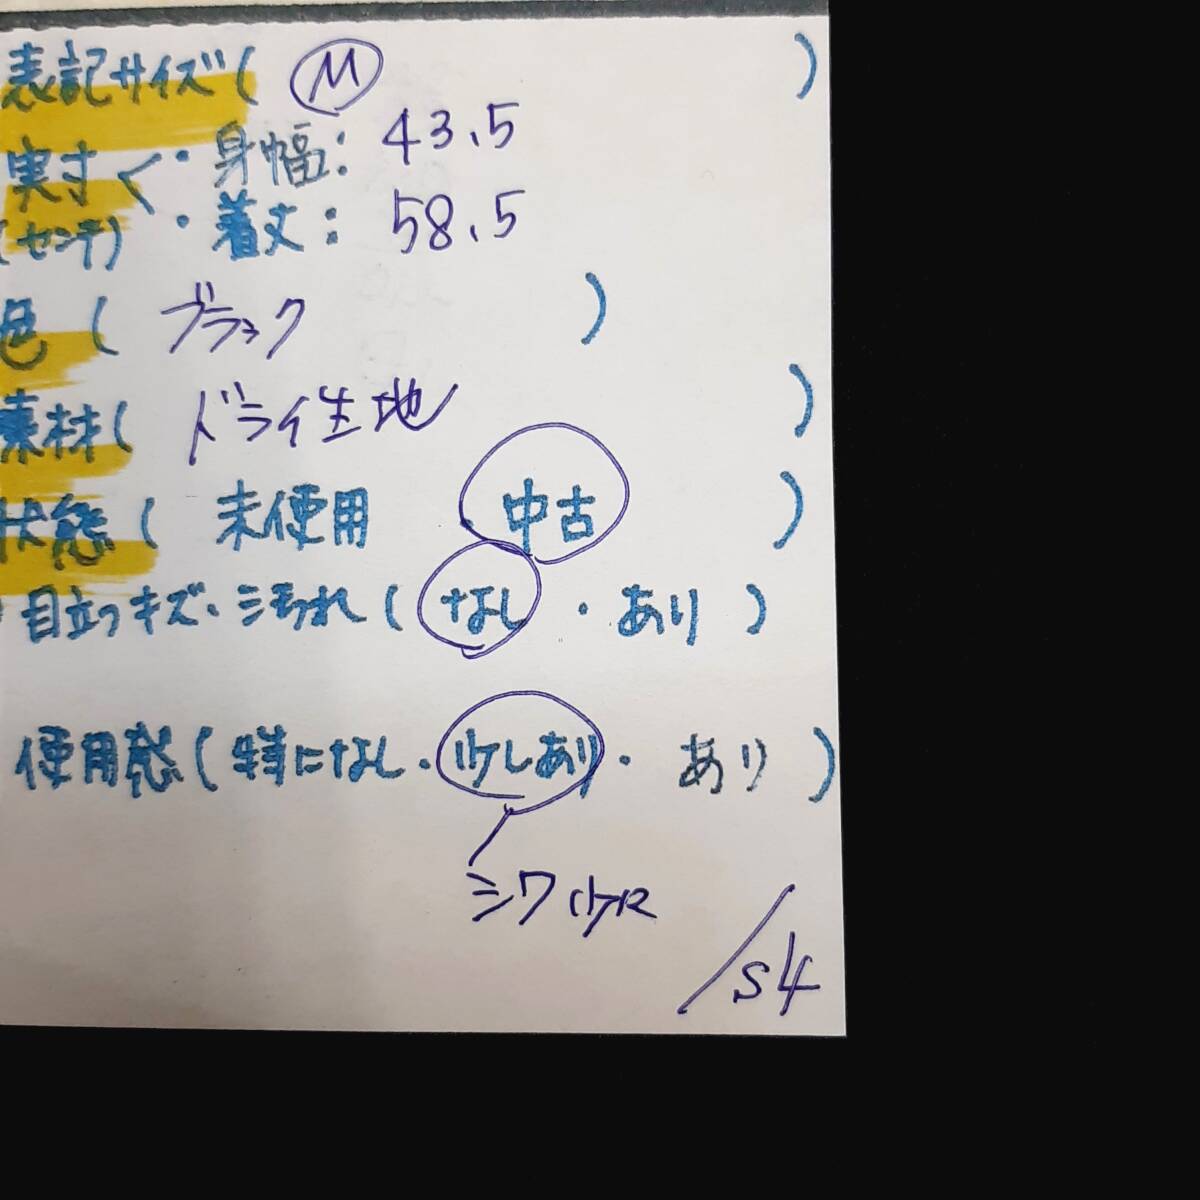 表記サイズ( M )
実すん ・身幅: 43.5
(センチ) ・着丈: 58.5
色( ブラック )
素材( ドライ生地 )
状態( 未使用 中古 )
目立つキズ・汚れ(なし・あり)
使用感(特になし・少しあり・あり)
シワ
/S4